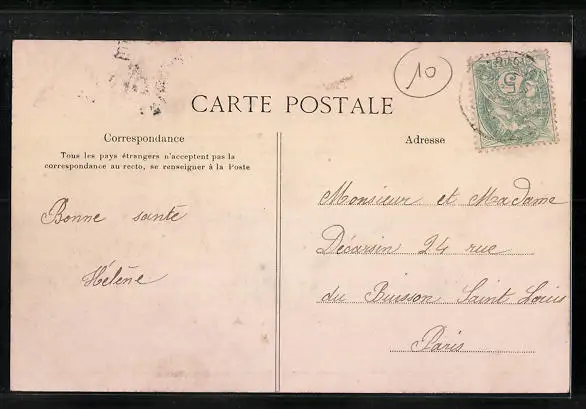 10
CARTE POSTALE
Correspondance
Tous les pays étrangers n'acceptent pas la
correspondance au recto, se renseigner à la Poste
Bonne santé
Hélène
Adresse
Monsieur et Madame
Décarsin 24 rue
du Buisson Saint Louis
Paris